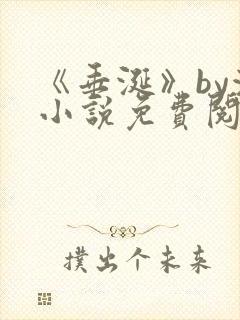 《垂涎》by
小說免費閱
撲出个未来